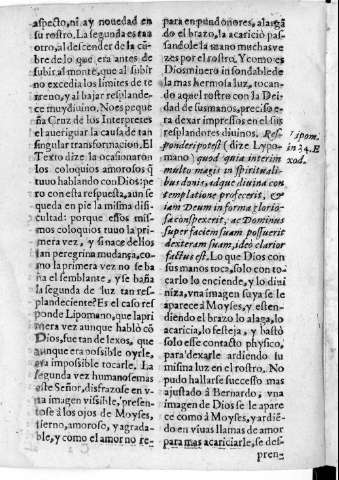 aspecto, ni ay nouedad en
su rostro. La segunda es tra
otro, al descender de la cũ
bre de lo que era antes de
subir al monte, que al subir
no excedia los limites de te
rreno, y al bajar resplande-
ce muy diuino. No es peque
ña Cruz de los Interpretes
el aueriguar la causa de tan
singular transformacion. El
Texto dize la ocasionaron
los coloquios amorosos q̃
tuuo hablando con Dios: pe
ro con esta respuesta, aun se
queda en pie la misma difi-
cultad: porque essos mis-
mos coloquios tuuo la pri-
mera vez, y si nace dellos
tan peregrina mudança, co-
mo la primera vez no se ba
ña el semblante, y se baña
la segunda de luz tan res-
plandeciente? Es el caso res
ponde Lipomano, que la pri
mera vez aunque habló cõ
Dios, fue tan de lexos, que
aunque era possible oyrle,
era impossible tocarle. La
segunda vez humano semas
este Señor, disfrazose en vi-
ta imagen visible, presen-
tose à los ojos de Moyses,
tierno, amoroso, y agrada-
ble, y como el amor no re-
para en pundonores, alargã
do el brazo, la acariciò pas-
sandole la mano muchas ve
zes por el rostro. Y como es
Dios minero insondable de
la mas hermosa luz, tocan-
do aquel rostro con la Dei-
dad de sus manos, preciso e-
ra dexar impressos en el sus
resplandores diuinos. Res-
ponderi potest (dize Lypo-
mano) quod quia interim
multo magis in spirituali-
bus donis, atque diuina con-
templatione profecerit, &
iam Deum in forma glorio-
sa conspexerit, ac Dominus
super faciem suam possuerit
dexteram suam, ideò clarior
factus est. Lo que Dios con
sus manos toca, solo con to-
carlo lo enciende, y lo diui
niza, vna imagen suya se le
aparece à Moyses, y esten-
diendo el brazo lo alaga, lo
acaricia, lo festeja, y bastò
solo esse contacto physico,
para dexarle ardiendo su
misma luz en el rostro. No
pudo hallarse sucesso mas
ajustado à Bernardo, vna
imagen de Dios se le apare
ce como à Moyses, y ardiẽ-
do en viuas llamas de amor
para mas acariciarle, se des-
pren-
Lipom.
in 34. E
xod.